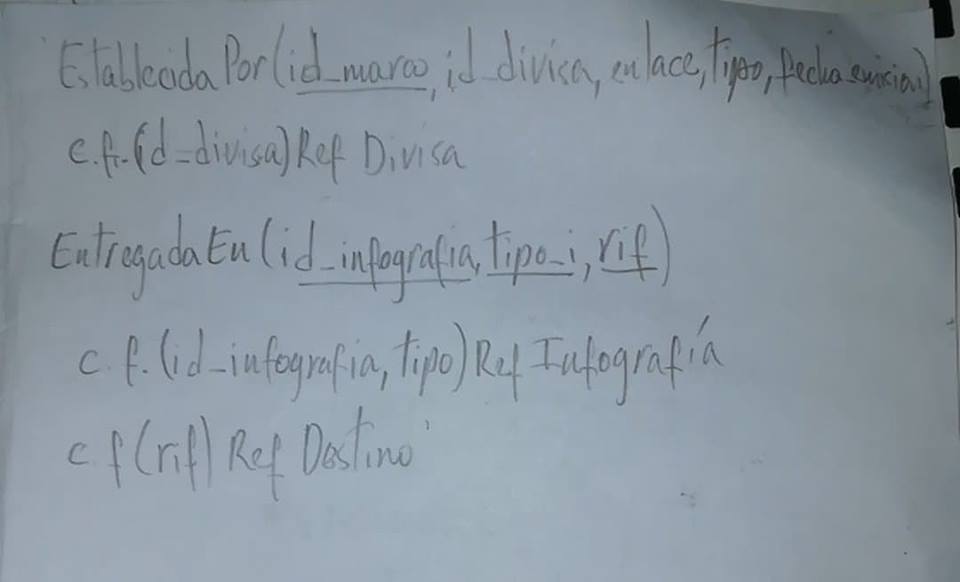 Establecida Por (id_marco, id_divisa, enlace, tipo, fecha_inicial)
c.f. (id_divisa) Ref Divisa
Entregada En (id_infografia, tipo_i, rif)
c.f. (id_infografia, tipo) Ref Infografía
c f (rif) Ref Destino